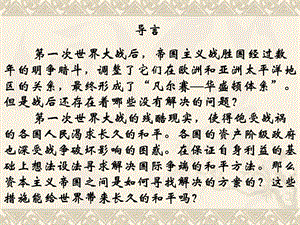 导言
第一次世界大战后，帝国主义战胜国经过数
年的明争暗斗，调整了它们在欧洲和亚洲太平洋地
区的关系，最终形成了“凡尔赛—华盛顿体系”。
但是战后还存在着哪些没有解决的问题？
第一次世界大战的残酷现实，使得饱受战祸
的各国人民渴求长久的和平。各国的资产阶级政府
也深受战争破坏影响的困扰。在保证自身利益的基
础上想法设法寻求解决国际争端的和平方法。那么
资本主义帝国之间是如何寻找解决的方案的？这些
措施能给世界带来长久的和平吗？